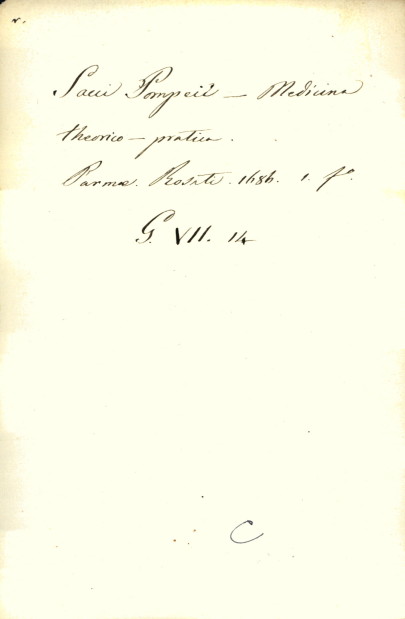 Sacci Pompeii – Medicina
theorico – pratica.
Parmæ. Rosati. 1686. 1. fº.
G. VII. 14
C